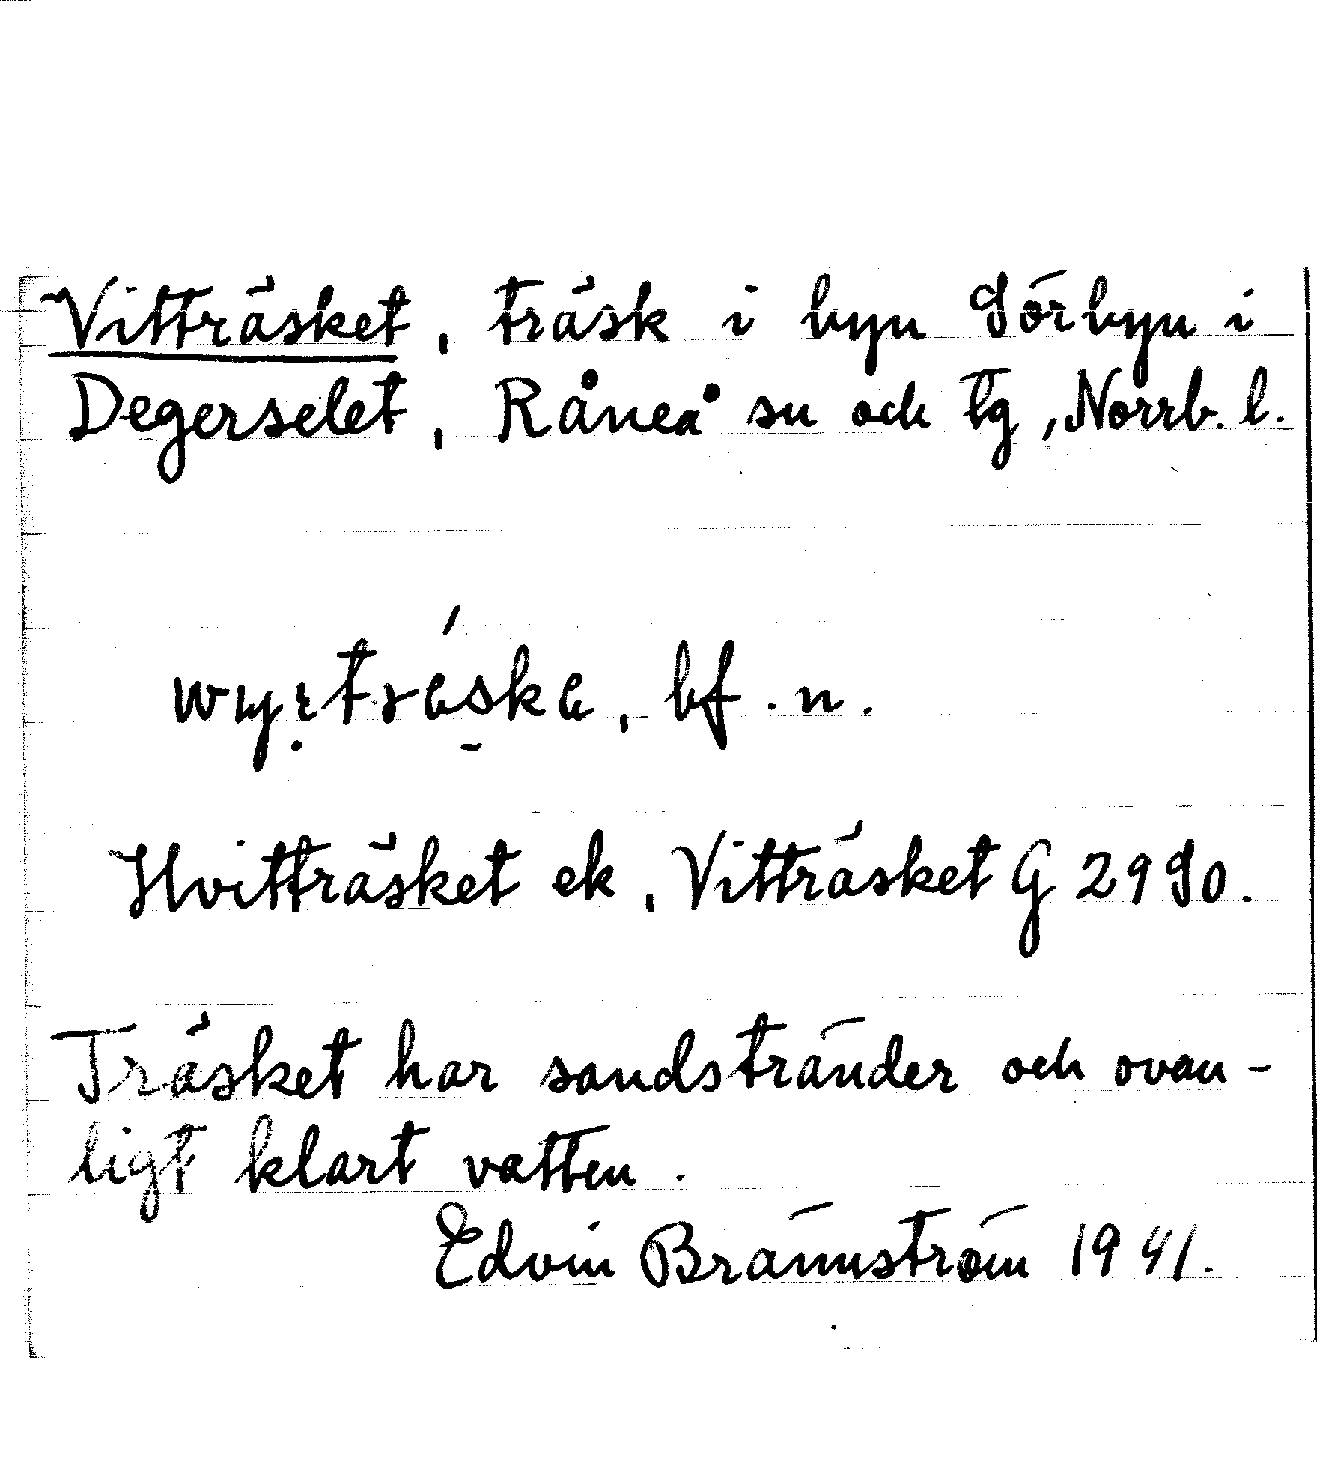 Vitträsket, träsk i byn Sörbyn i
Degerselet, Råneå sn och tg, Norrb. l.
bf. n.
Hvitträsket ek, Vitträsket G 2990.
Träsket har sandstränder och ovan-
ligt klart vatten.
Edvin Brännström 1941.